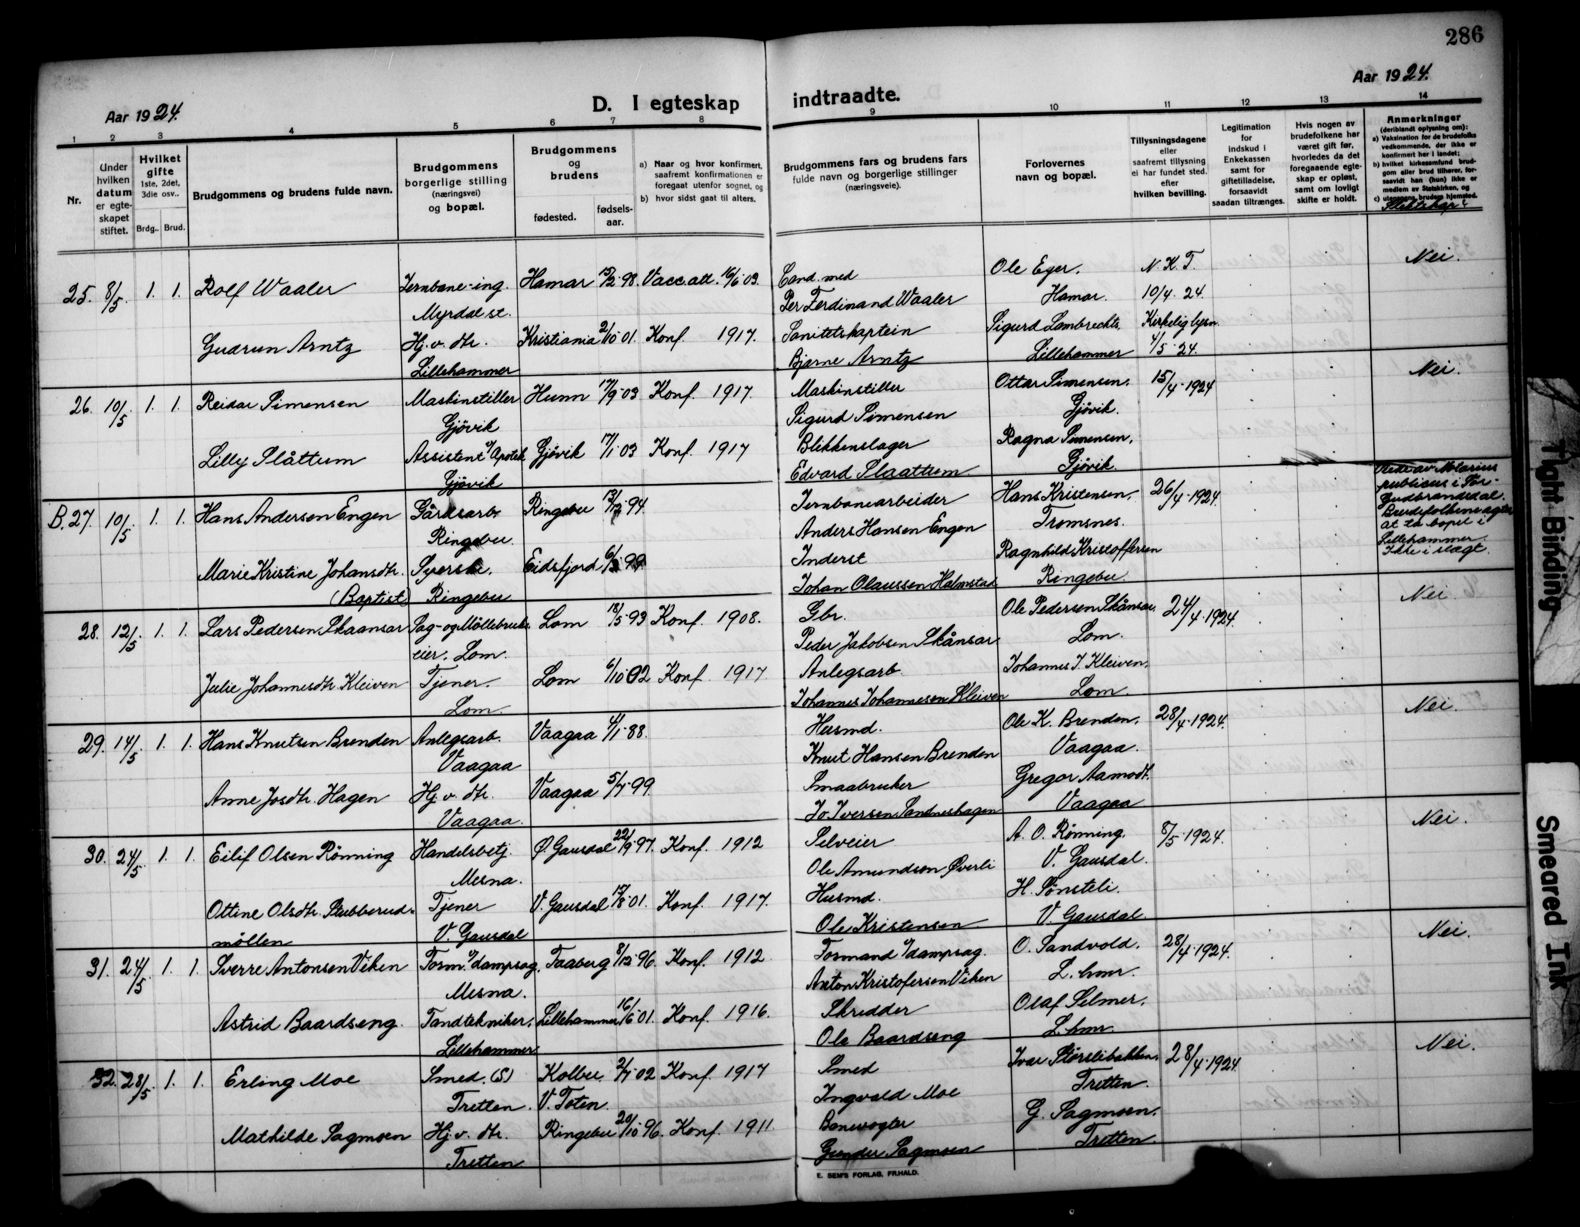 286
Aar 1924.
D. I egteskap indtraadte.
Aar 1924.
1 2 3 4 5 6 7 8 9 10 11 12 13 14
Nr.
Under hvilken datum er egte-skapet stiftet.
Hvilket gifte 1ste, 2det, 3die osv..
Brdg.. Brud.
Brudgommens og brudens fulde navn.
Brudgommens borgerlige stilling (næringsvei) og bopæl.
Brudgommens og brudens
fødested.
fødsels-aar.
a) Naar og hvor konfirmert, saafremt konfirmationen er foregaat utenfor sognet, og
b) hvor sidst gaat til alters.
Brudgommens fars og brudens fars fulde navn og borgerlige stillinger (næringsveie).
Forlovernes navn og bopæl.
Tillysningsdagene eller saafremt tillysning ei har fundet sted. efter hvilken bevilling.
Legitimation for indskud i Enkekassen samt for giftetilladelse, forsaavidt saadan tiltrænges.
Hvis nogen av brudefolkene har været gift før, hvorledes da det foregaaende egte-skap er opløst, samt om lovligt skifte er holdt.
Anmerkninger (deriblandt oplysning om):
a) Vaksination for de brudefolks vedkommende, der ikke er konfirmert her i landet;
b) hvilket kirkesamfund brud-gom eller brud tilhører, for-saavidt han (hun) ikke er medlem av Statskirken, og
c) utensogns brudens hjemsted.
Slektskap?
25. 8/5 1. 1. Rolf Waaler Jernbane-ing. Hamar 15/2 98. Vacc. att. 16/6 03. Cand. med Ole Eger. N.K.T. Nei.
Myrdal st. Per Ferdinand Waaler Hamar. 10/4 24.
Gudrun Arntz Hj. v. dtr. Kristiania 2/10 01 Konf. 1917. Sanitetskaptein Sigurd Lambrechts, Kirkelig lysn.
Lillehammer Bjarne Arntz Lillehammer 4/5 24.
26. 10/5 1. 1. Reidar Simensen Maskinstiller Hunn 17/9 03 Konf. 1917. Maskinstiller Ottar Simensen, 15/4-1924 Nei.
Gjövik Sigurd Simensen Gjövik.
Lilly Slåttum Assistent v/ Apotek Gjövik 17/1 03 Konf. 1917 Blikkenslager Ragna Simensen,
Gjövik Edvard Slaattum Gjövik
B. 27. 10/5 1. 1. Hans Andersen Engen Gårdsarb. Ringebu 13/12 94 Jernbanearbeider Hans Kristensen, 26/4-1924. Viede av Notarius publicus i Sör-Gudbrandsdal. Brudefolkene agter at ta bopel i Lillehammer. Ikke i slegt.
Ringebu. Anders Hansen Engen Tromsnes.
Marie Kristine Johansdtr. Syerske. Eidsfjord 99 Inderst Ragnhild Kristoffersen
(Baptist) Ringebu Johan Olaussen Halmstad Ringebu
28. 12/5. 1. 1. Lars Pedersen Skaansar Sag- og Möllebruks- Lom 18/5 93 Konf. 1908. Gbr. Ole Pedersen Skånsar, 24/4-1924. Nei
eier. Lom. Peder Jakobsen Skånsar Lom.
Julie Johannesdtr. Kleiven Tjener. Lom 6/10 02 Konf. 1917 Anlegsarb. Johannes J. Kleiven,
Lom. Johannes Johannesen Kleiven Lom
29. 14/5. 1. 1. Hans Knutsen Brenden Anlegsarb. Vaagaa 4/1 88. Husmd. Ole K. Brenden, 28/4-1924. Nei.
Vaagaa Knut Hansen Brenden Vaagaa.
Anne Josdtr. Hagen Hj. v. dtr. Vaagaa 5/7 99. Smaabruker Gregor Aamodt.
Vaagaa. Jo Iversen Sandneshagen Vaagaa
30. 24/5. 1. 1. Eilif Olsen Rönning Handelsbetj. Ø. Gausdal 22/9 97. Konf. 1912 Selveier A. O. Rönning. 8/5-1924. Nei.
Mesna. Ole Amundsen Överli V. Gausdal.
Ottine Olsdtr. Stubberud- Tjener V. Gausdal 17/8 01. Konf. 1917. Husmd. H. Sönsteli.
möllen V. Gausdal Ole Kristensen V. Gausdal
31. 24/5 1. 1. Sverre Antonsen Viken Form. v/ dampsag. Faaberg 8/12 96. Konf. 1912. Formand v/ dampsag. O. Sandvold. 28/4-1924. Nei.
Mesna. Anton Kristofersen Viken L. hmr.
Astrid Baardseng. Tandtekniker, Lillehammer 16/6 01. Konf. 1916. Skredder Olaf Selmer,
Lillehammer Ole Baardseng L. hmr
32. 28/5 1. 1. Erling Moe Smed. (S) Kolbu. 2/7 02 Konf. 1917 Smed Ivar Störslibakken, 28/4-1924 Nei.
Tretten. V. Toten. Ingvald Moe Tretten.
Mathilde Sagmoen Hj. v. dtr. Ringebu 20/10 96. Konf. 1911. Banevogter G. Sagmoen.
Tretten Gunder Sagmoen Tretten
E. SEM'S FORLAG, FR.HALD.
Tight Binding
Smeared Ink